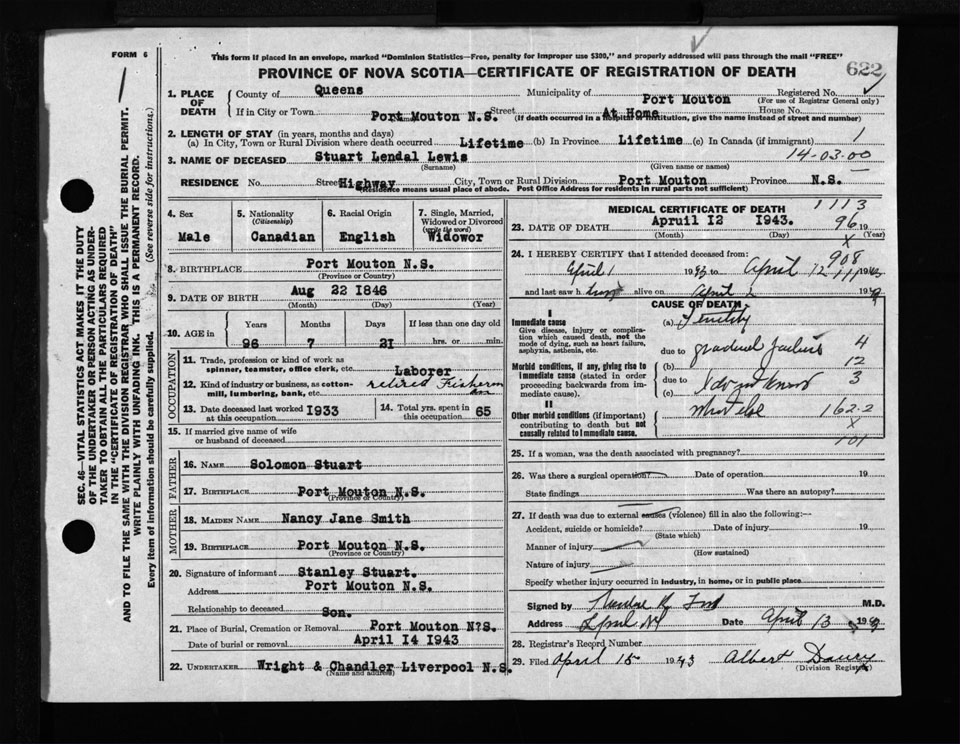 FORM 6
This form if placed in an envelope, marked "Dominion Statistics—Free, penalty for improper use $300," and properly addressed will pass through the mail "FREE"
PROVINCE OF NOVA SCOTIA—CERTIFICATE OF REGISTRATION OF DEATH
622
1. PLACE OF DEATH
County of Queens Municipality of Port Mouton Registered No.
(For use of Registrar General only)
If in City or Town Port Mouton N.S. Street At Home House No.
(If death occurred in a hospital or institution, give the name instead of street and number)
2. LENGTH OF STAY (in years, months and days)
(a) In City, Town or Rural Division where death occurred Lifetime (b) In Province Lifetime (c) In Canada (if immigrant) 1
14-03-00
3. NAME OF DECEASED Stuart Lendal Lewis
(Surname) (Given name or names)
RESIDENCE No. Street Highway City, Town or Rural Division Port Mouton Province N.S.
(Residence means usual place of abode. Post Office Address for residents in rural parts not sufficient)
4. Sex Male
5. Nationality (Citizenship) Canadian
6. Racial Origin English
7. Single, Married, Widowed or Divorced (write the word) Widowor
8. BIRTHPLACE Port Mouton N.S.
(Province or Country)
9. DATE OF BIRTH Aug 22 I846
(Month) (Day) (Year)
10. AGE in Years Months Days If less than one day old
96 7 21 hrs. or min.
OCCUPATION
11. Trade, profession or kind of work as spinner, teamster, office clerk, etc. Laborer
12. Kind of industry or business, as cotton-mill, lumbering, bank, etc. retired Fisherman
13. Date deceased last worked at this occupation I933
14. Total yrs. spent in this occupation 65
15. If married give name of wife or husband of deceased
FATHER
16. NAME Solomon Stuart
17. BIRTHPLACE Port Mouton N.S.
(Province or Country)
MOTHER
18. MAIDEN NAME Nancy Jane Smith
19. BIRTHPLACE Port Mouton N.S.
(Province or Country)
20. Signature of informant Stanley Stuart.
Address Port Mouton N.S.
Relationship to deceased Son.
21. Place of Burial, Cremation or Removal Port Mouton N?S.
Date of burial or removal April I4 I943
22. UNDERTAKER Wright & Chandler Liverpool N.S.
(Name and address)
MEDICAL CERTIFICATE OF DEATH 1113
23. DATE OF DEATH Apruil I2 1943. 96 19
(Month) (Day) (Year)
x
24. I HEREBY CERTIFY that I attended deceased from: 908
April 1 1943 to April 12 1943
and last saw h alive on April 19
CAUSE OF DEATH
I
Immediate cause
Give disease, injury or complication which caused death, not the mode of dying, such as heart failure, asphyxia, asthenia, etc.
(a) Senility
due to gradual failure 4
Morbid conditions, if any, giving rise to immediate cause (stated in order proceeding backwards from immediate cause).
(b) 12
due to 3
(c)
II
Other morbid conditions (if important) contributing to death but not causally related to immediate cause.
162-2
x
101
25. If a woman, was the death associated with pregnancy?
26. Was there a surgical operation Date of operation 19
State findings Was there an autopsy?
27. If death was due to external causes (violence) fill in also the following:—
Accident, suicide or homicide? Date of injury 19
(State which)
Manner of injury
(How sustained)
Nature of injury
Specify whether injury occurred in industry, in home, or in public place
Signed by M.D.
Address Date April 13 1943
28. Registrar's Record Number
29. Filed April 15 1943 Albert
(Division Registrar)
SEC. 46—VITAL STATISTICS ACT MAKES IT THE DUTY
OF THE UNDERTAKER OR PERSON ACTING AS UNDER-
TAKER TO OBTAIN ALL THE PARTICULARS REQUIRED
IN THE "CERTIFICATE OF REGISTRATION OF DEATH"
AND TO FILE THE SAME WITH THE DIVISION REGISTRAR WHO SHALL ISSUE THE BURIAL PERMIT.
WRITE PLAINLY WITH UNFADING INK. THIS IS A PERMANENT RECORD.
Every item of information should be carefully supplied. (See reverse side for instructions.)